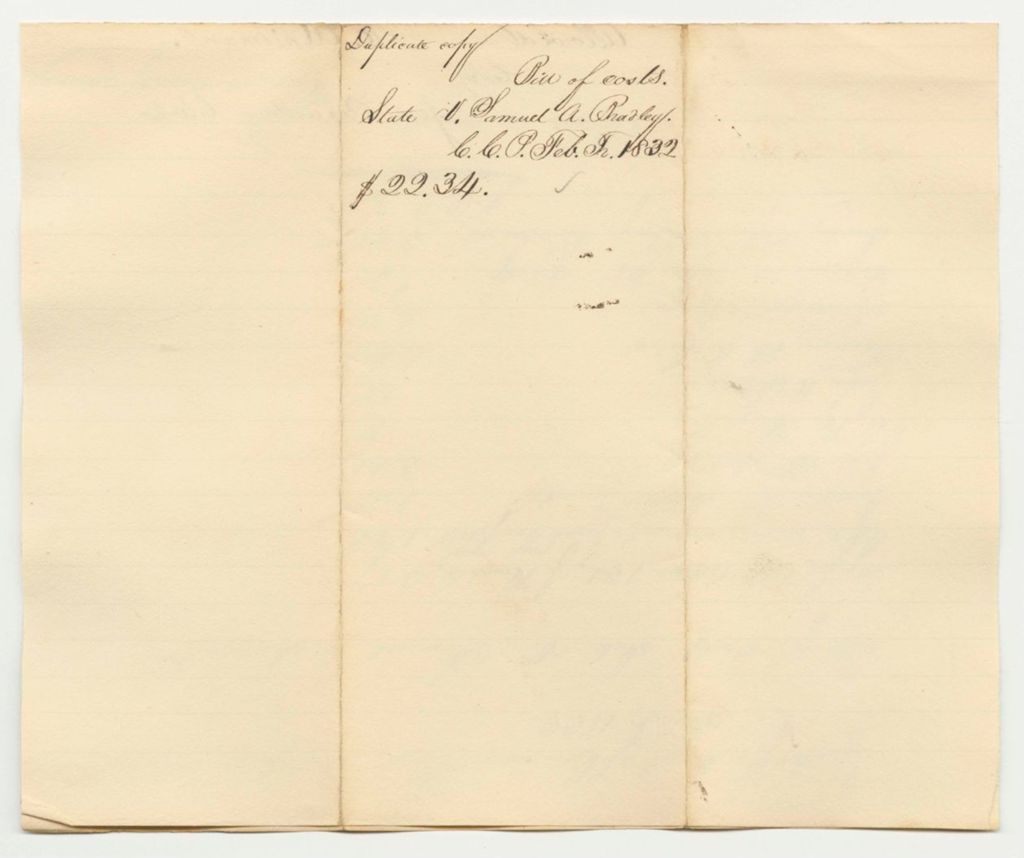 Duplicate copy
Bill of costs.
State v. Samuel A. Bradley.
C. C. P. Feb. Tr. 1832
$22.34.